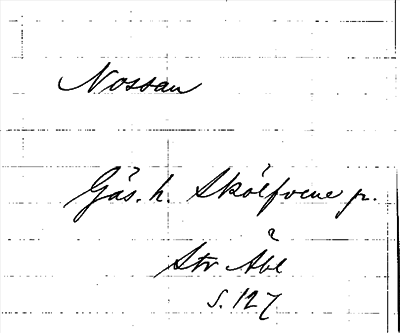 Nossan
Gäs. h. Skölfvene sn.
Str Åbl
s. 127